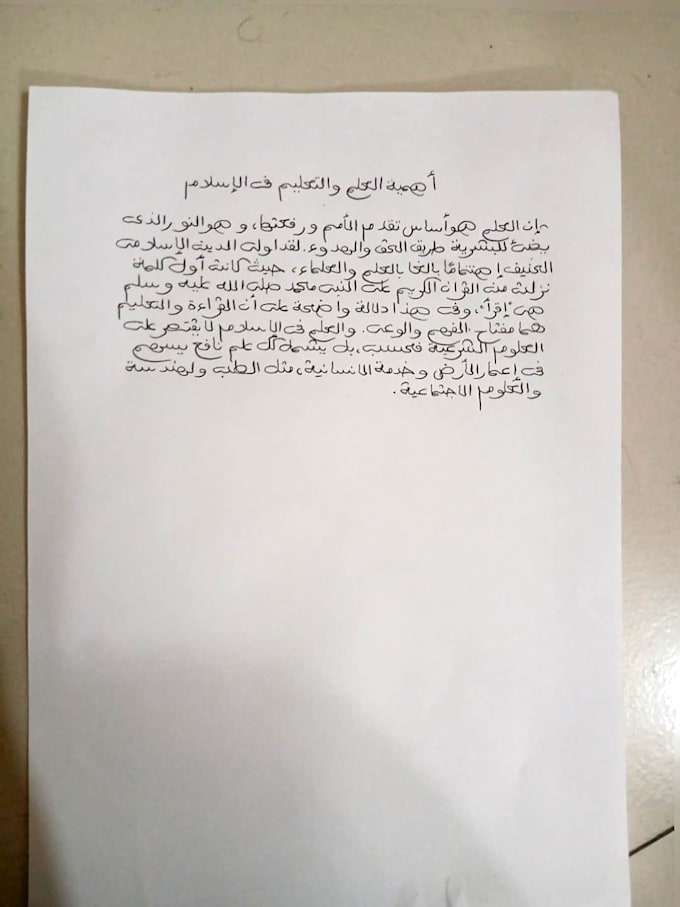 أهمية العلم والتعليم في الإسلام
إن العلم هو أساس تقدم الأمم ورفعتها، وهو النور الذي
يضئ للبشرية طريق الحق والهدوء. لقد اولى الدين الإسلامي
الحنيف إهتمامًا بالغا بالعلم والعلماء، حيث كانت أول كلمة
نزلت من القران الكريم على النبي محمد صلى الله عليه وسلم
هي "إقرأ"، وفي هذا دلالة واضحة على أن القراءة والتعليم
هما مفتاح الفهم والوعي. والعلم في الإسلام لا يقتصر على
العلوم الشرعية فحسب، بل يشمل كل علم نافع يسهم
في إعمار الأرض وخدمة الانسانية، مثل الطب ولهندسة
والعلوم الاجتماعية.